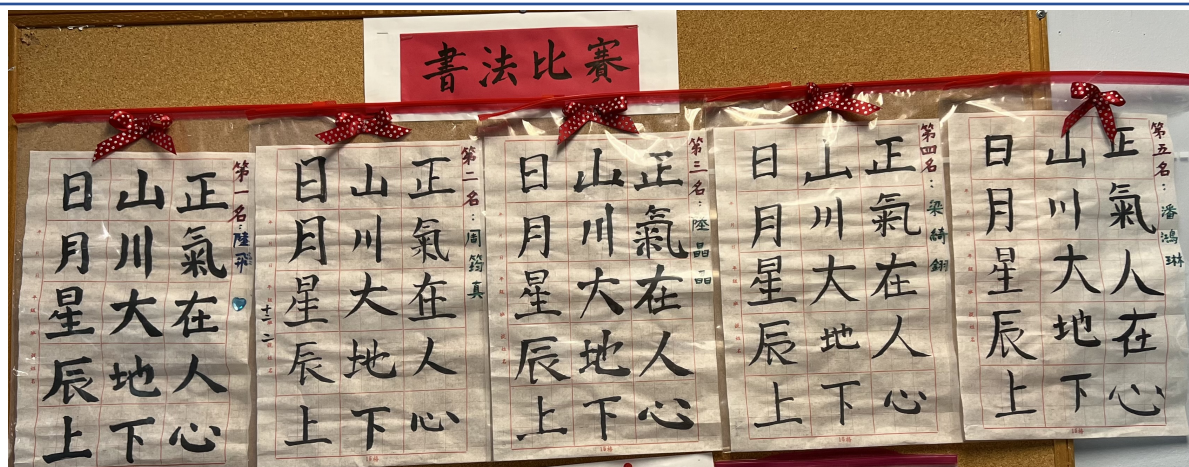 書法比賽
第一名:陸飛
正氣在人心
山川大地下
日月星辰上
第二名:周筠真
正氣在人心
山川大地下
日月星辰上
第三名:陸晶晶
正氣在人心
山川大地下
日月星辰上
第四名:梁綺
正氣在人心
山川大地下
日月星辰上
第五名:潘鴻琳
正氣人在心
山川大地下
日月星辰上